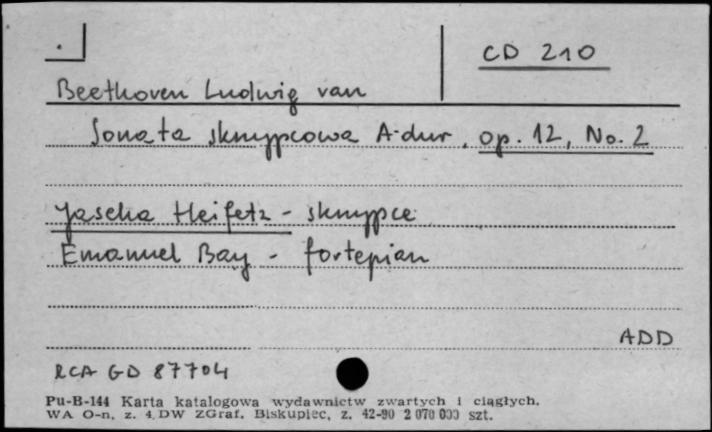 CD 210
Beethoven Ludwig van
Sonata skrzypcowa A-dur, op. 12, No. 2
Jascha Heifetz - skrzypce
Emanuel Bay - fortepian
ADD
RCA GD 87704
Pu-B-144 Karta katalogowa wydawnictw zwartych i ciągłych.
WA O-n, z. 4. DW ZGraf. Biskupiec, z. 42-90 2 070 000 szt.